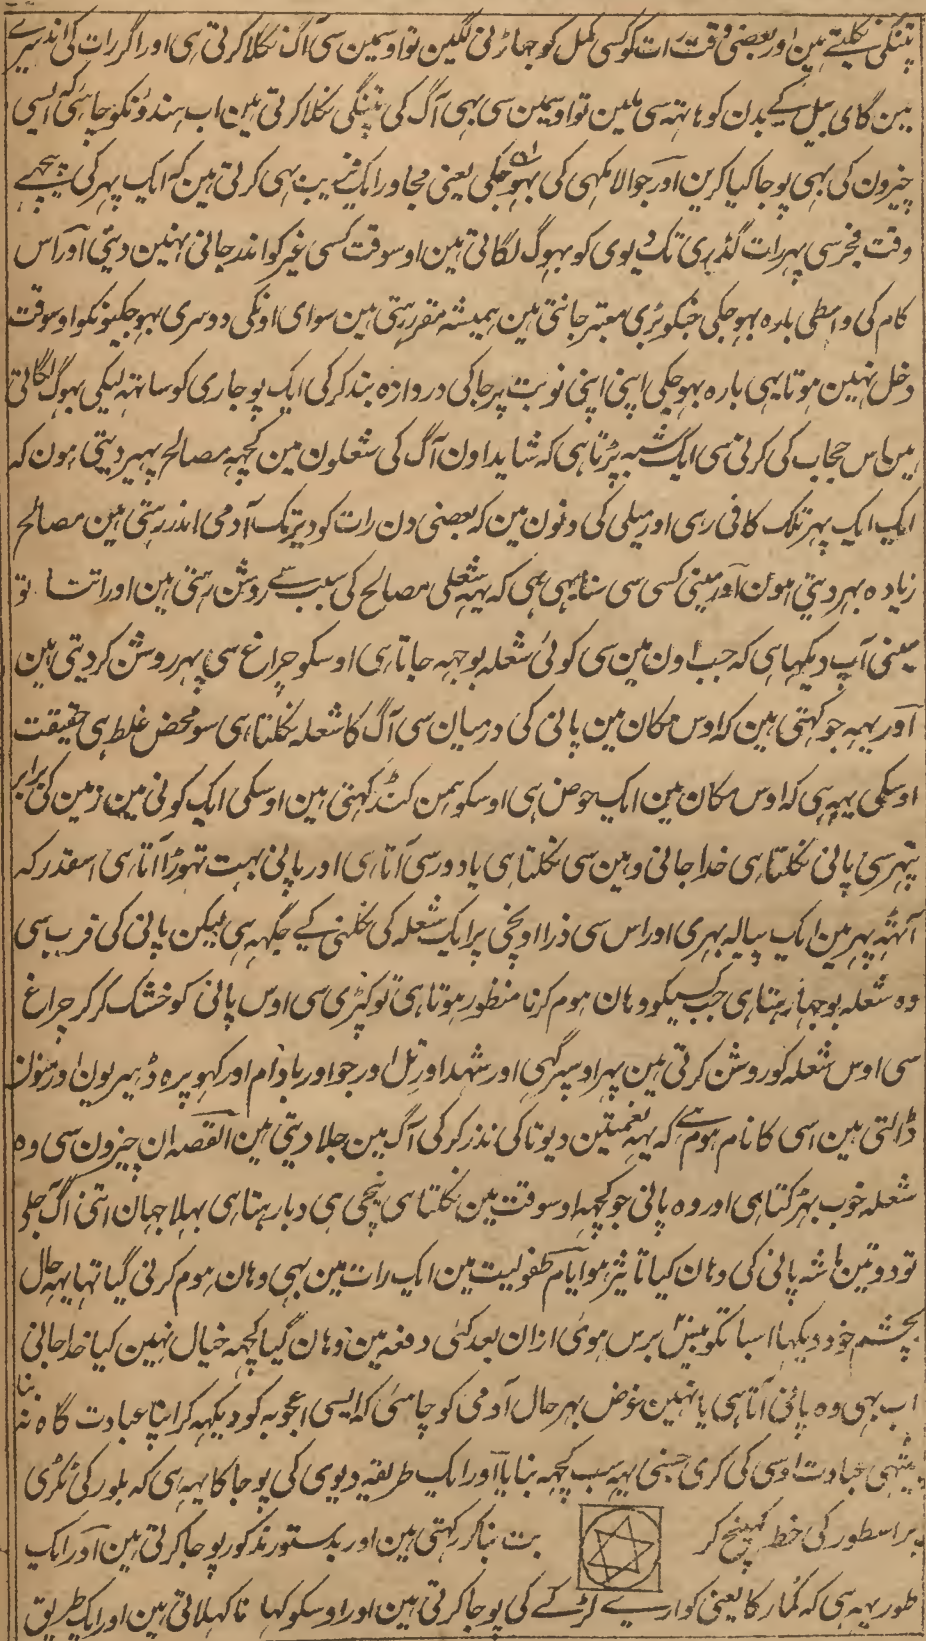 پتنگی نکلتے ہین اور بعضی وقت رات کو کسی کمل کو جھاڑنی لگین تو اوسمین سی آگ نکلا کرتی ہی اور اگر رات کی اندھیرے
مین گای بیل کے بدن کو ہاتہ سی ملین تو اوسمین سی بھی آگ کی پتنگی نکلا کرتی ہین اب ہندوئونکو چاہئی کہ ایسی
چیزون کی بھی پوجا کیا کرین اور جوالا مکہی کی بہوجکی یعنی مجاور ایک فریب بھی کرتی ہین کہ ایک پہر کی پیچہے
وقت فجر سی پہر رات گذری تک دیوی کو بہوگ لگاتی ہین اوسوقت کسی غیر کو اندر جانی نہین دیتی اور اس
کام کی واسطی بارہ بہوجکی جنکو بڑی معتبر جانتی ہین ہمیشہ مقرر رہتی ہین سوای اونکی دوسری بہوجکیونکو اوسوقت
دخل نہین ہوتا یہی بارہ بہوجکی اپنی اپنی نوبت پر جاکی دروازہ بند کرکی ایک پوجاری کو ساتہہ لیکی بہوگ لگاتی
ہین اس حجاب کی کرنی سی ایک شبہ پڑتا ہی کہ شاید اون آگ کی شعلون مین کچہہ مصالح پہیر دیتی ہون کہ
ایک ایک پہر تک کافی رہی اور میلی کی دنون مین کہ بعضی دن رات کو دیر تک آدمی اندر رہتی ہین مصالح
زیادہ بہر دیتی ہون اور مینی کسی سی سنا بھی ہی کہ یہہ شعلی مصالح کی سبب سے روشن رہتی ہین اور اتنا تو
مینی آپ دیکہا ہی کہ جب اون مین سی کوئی شعلہ بوجہہ جاتا ہی اوسکو چراغ سی پہر روشن کر دیتی ہین
اور یہہ جو کہتی ہین کہ اوس مکان مین پانی کی درمیان سی آگ کا شعلہ نکلتا ہی سو محض غلط ہی حقیقت
اوسکی یہہ ہی کہ اوس مکان مین ایک حوض ہی اوسکو ہمن کنڈ کہتی ہین اوسکی ایک کونی مین زمین کی برابر
پتہر سی پانی نکلتا ہی خدا جانی وہین سی نکلتا ہی یا دور سی آتا ہی اور پانی بہت تہوڑا آتا ہی اسقدر کہ
آٹہہ پہر مین ایک پیالہ بہری اور اس سی ذرا اونچی پر ایک شعلہ کی نکلنی کے جگہہ ہی لیکن پانی کی قرب سی
وہ شعلہ بوجہا رہتا ہی جب کسیکو وہان ہوم کرنا منظور ہوتا ہی تو کپڑی سی اوس پانی کو خشک کر کر چراغ
سی اوس شعلہ کو روشن کرتی ہین پہر اوسپر گہی اور شہد اور تل اور جو اور بادام اور کہوپرہ ڈہیریون اور منون
ڈالتی ہین اسی کا نام ہوم ہے کہ یہہ نعمتین دیوتا کی نذر کرکی آگ مین جلا دیتی ہین القصہ ان چیزون سی وہ
شعلہ خوب بہڑکتا ہی اور وہ پانی جو کچہہ اوسوقت مین نکلتا ہی نیچی ہی دبا رہتا ہی بہلا جہان اتنی آگ جلی
تو دو تین ماشہ پانی کی وہان کیا تاثیر ہو ایام طفولیت مین ایک رات مین بھی وہان ہوم کرنی گیا تہا یہہ حال
بچشم خود دیکہا اسبا تکو بیس برس ہوئی ازان بعد کئی دفعہ مین وہان گیا کچہہ خیال نہین کیا خدا جانی
اب بھی وہ پانی آتا ہی یا نہین غرض بہر حال آدمی کو چاہئی کہ ایسی اعجوبہ کو دیکہہ کر اپنا عبادت گاہ نہ بنا
بیٹہی عبادت اوسی کی کری جسنی یہہ سب کچہہ بنایا اور ایک طریقہ دیوی کی پوجا کا یہہ ہی کہ بلور کی ٹکڑی
پر اسطور کی خط کہینچ کر بت بنا کر رکہتی ہین اور بدستور مذکور پوجا کرتی ہین اور ایک
طور یہہ ہی کہ کمار کا یعنی کواریے لڑکے کی پوجا کرتی ہین اور اوسکو کہا نا کہلاتی ہین اور ایک طریق